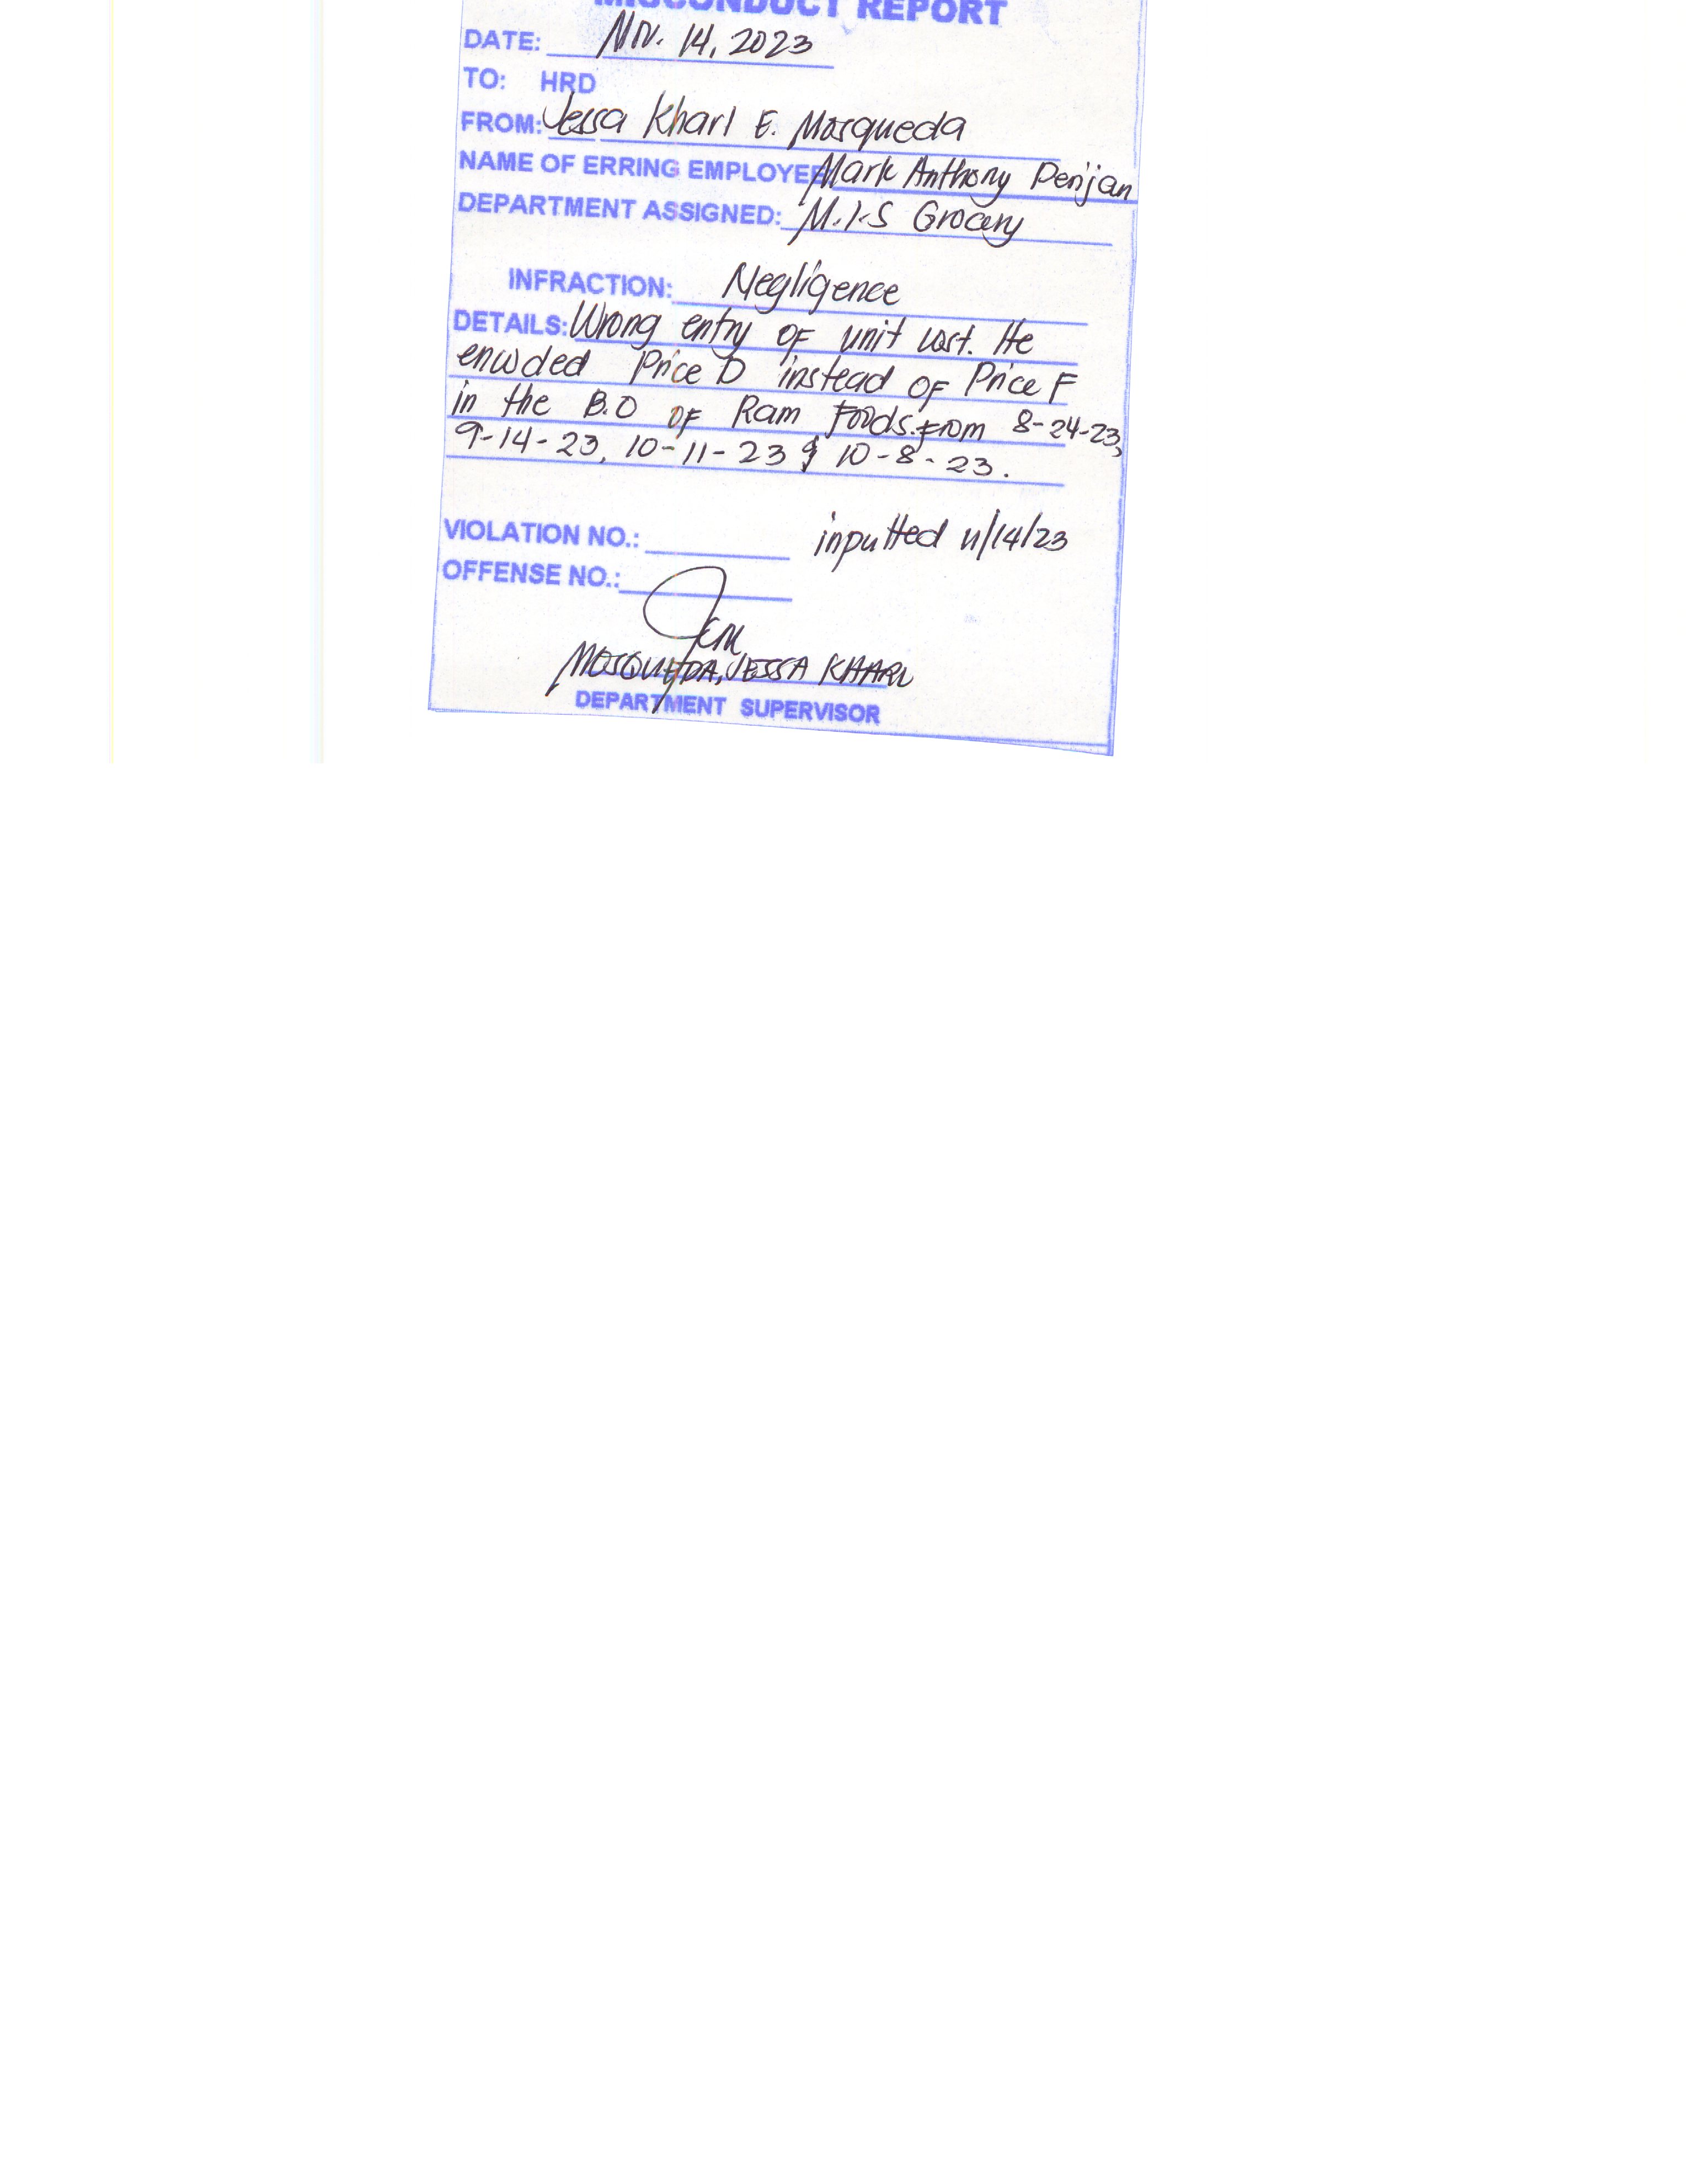 MISCONDUCT REPORT
DATE: Nov. 14, 2023
TO: HRD
FROM: Jessa Kharl E. Mosqueda
NAME OF ERRING EMPLOYEE Mark Anthony Penjan
DEPARTMENT ASSIGNED: M.I.S Grocery
INFRACTION: Negligence
DETAILS: Wrong entry of unit cost. He
encoded Price D instead of Price F
in the B.O of Ram Foods. from 8-24-23,
9-14-23, 10-11-23 & 10-8-23.
VIOLATION NO.: inputted 11/14/23
OFFENSE NO.:
JKM
MOSQUEDA, JESSA KHARL
DEPARTMENT SUPERVISOR